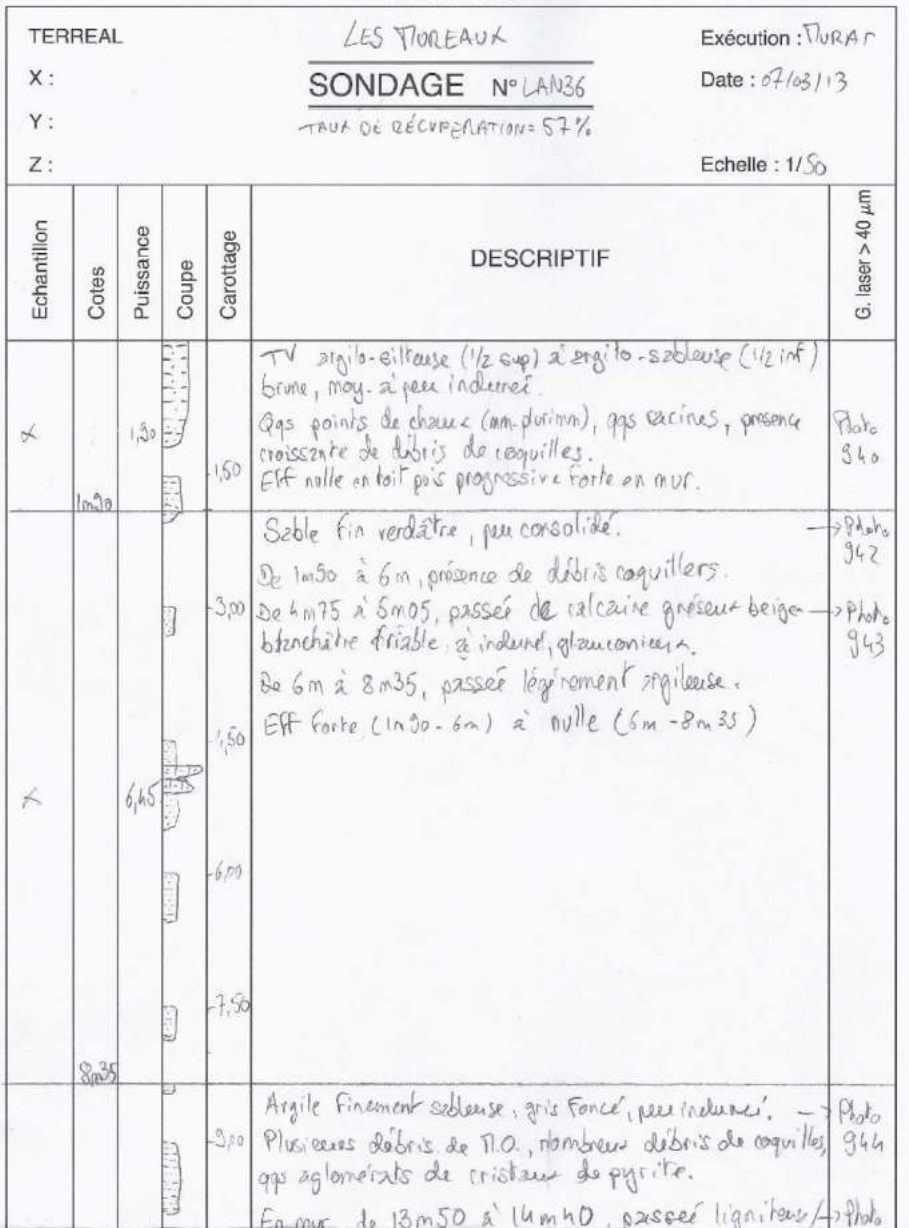 TERREAL
LES MUREAUX
Exécution : MURAT
X :
SONDAGE N° LAN36
Date : 07/03/13
Y :
TAUX DE RÉCUPERATION = 57%
Z :
Echelle : 1/50
Echantillon
Cotes
Puissance
Coupe
Carottage
DESCRIPTIF
G. laser > 40 µm
TV argilo-silteuse (1/2 sup) à argilo-sableuse (1/2 inf)
brune, moy. à peu indurée.
Qqs points de chaux (mm-plurimm), qqs racines, présence
croissante de débris de coquilles.
Eff nulle en toit puis progressive forte en mur.
x
1,90
1,50
1m90
Photo
940
Sable fin verdâtre, peu consolidé. → Photo
942
De 1m90 à 6m, présence de débris coquillers.
3,00
De 4m75 à 5m05, passée de calcaire gréseux beige → Photo
943
blanchâtre friable à induré, glauconieux.
De 6m à 8m35, passée légèrement argileuse.
Eff forte (1m90-6m) à nulle (6m-8m35)
4,50
x
6,45
6,00
7,50
8m35
Argile finement sableuse, gris foncé, peu indurée. → Photo
944
9,00
Plusieurs débris de M.O., nombreux débris de coquilles,
qqs aglomérats de cristaux de pyrite.
En mur, de 13m50 à 14m40, passée ligniteuse/→ Photo